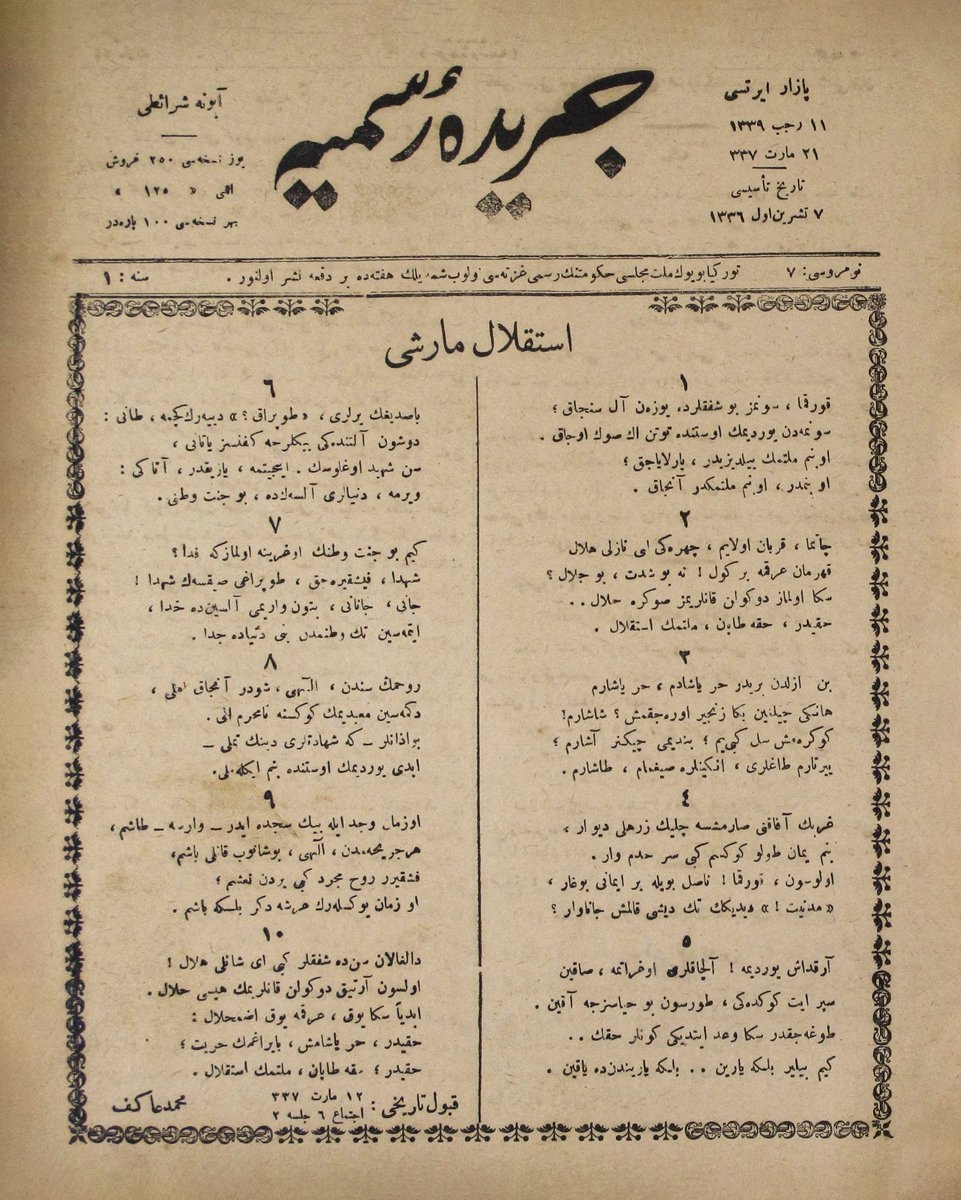 پازار ایرتسی
١١ رجب ١٣٣٩
٢١ مارت ٣٣٧
تاریخ تأسیسی
٧ تشرین‌اول ١٣٣٦
جریدهٔ رسمیه
آبونه شرائطی
یوز نسخه‌سی ٢٥٠ غروش
اللی « ١٢٥ »
بهر نسخه‌سی ١٠٠ پاره‌در
نومروسی: ٧
تورکیا بویوك ملت مجلسی حکومتنك رسمی غزته‌سی اولوب شمدیلك هفته‌ده بر دفعه نشر اولنور .
سنه : ١
استقلال مارشی
١
قورقما ، سونمز بو شفقلرده یوزن آل سنجاق ؛
سونمه‌دن یوردیمك اوستنده توتن اك صوك اوجاق .
او بنم ملتمك ییلدیزیدر ، پارلایاجق ؛
او بنمدر ، او بنم ملتمکدر آنجاق .
٢
چاتما ، قربان اولایم ، چهره‌کی ای نازلی هلال
قهرمان عرقمه بر کول ! نه بو شدت ، بو جلال ؟
سکا اولماز دوکولن قانلریمز صوکره حلال . .
حقیدر ، حقه طاپان ، ملتمك استقلال .
٣
بن ازلدن بریدر حر یاشادم ، حر یاشارم
هانکی چیلغین بکا زنجیر اوره‌جقمش ؟ شاشارم!
کوکره‌مش سل کبی‌یم ؛ بندیمی چیکنر آشارم ؛
ییرتارم طاغلری ، انکینلره صیغمام ، طاشارم .
٤
غربك آفاقنی صارمشسه چلیك زرهلی دیوار ،
بنم ایمان طولو کوکسم کبی سر حدم وار .
اولوسون ، قورقما ! ناصل بویله بر ایمانی بوغار ،
« مدنیت ! » دیدیکك تك دیشی قالمش جاناوار ؟
٥
آرقداش یوردیمه ! آلچاقلری اوغراتمه ، صاقین
سپر ایت کوکده‌کی ، طورسون بو حیاسزجه آقین .
طوغه‌جقدر سکا وعد ایتدیکی کونلر حقك . .
کیم بیلیر بلکه یارین . . بلکه یاریندن‌ده یاقین .
٦
باصدیغك یرلری ، « طوپراق ؟ » دییه‌رك کچمه ، طانی :
دوشون آلتنده‌کی بیکلرجه کفنسز یاتانی ،
سن شهید اوغلوسك . اینجیتمه ، یازیقدر ، آتاکی :
ویرمه ، دنیالری آلسه‌ك‌ده ، بو جنت وطنی .
٧
کیم بو جنت وطنك اوغرینه اولمازکه فدا ؟
شهدا ، فیشقیره‌جق ، طوپراغی صیقسه‌ك شهدا !
جانی ، جانانی ، بتون واریمی آلسین‌ده خدا ،
ایتمه‌سین تك وطنمدن بنی دنیاده جدا .
٨
روحمك سندن ، الهی ، شودر آنجاق املی ،
دکمه‌سین معبدیمك کوکسنه نامحرم الی .
بو اذانلر ـ که شهادتلری دینك تملی ـ
ابدی یوردیمك اوستنده بنم ایکله‌ملی .
٩
او زمان وجد ایله بیك سجده ایدر ـ وارسه ـ طاشم ،
هر جریحه‌مدن ، الهی ، بوشانوب قانلی یاشم،
فیشقیرر روح مجرد کبی یردن نعشم ؛
او زمان یوکسله‌رك عرشه دکر بلکه باشم .
١٠
دالغالان سن‌ده شفقلر کبی ای شانلی هلال !
اولسون آرتیق دوکولن قانلریمك هپسی حلال .
ابدیاً سکا یوق ، عرقمه یوق اضمحلال :
حقیدر ، حر یاشامش ، بایراغمك حریت ؛
حقیدر ؛ حقه طاپان ، ملتمك استقلال .
قبول تاریخی : ١٢ مارت ٣٣٧
اجتماع ٦ جلسه ٢
محمد عاکف